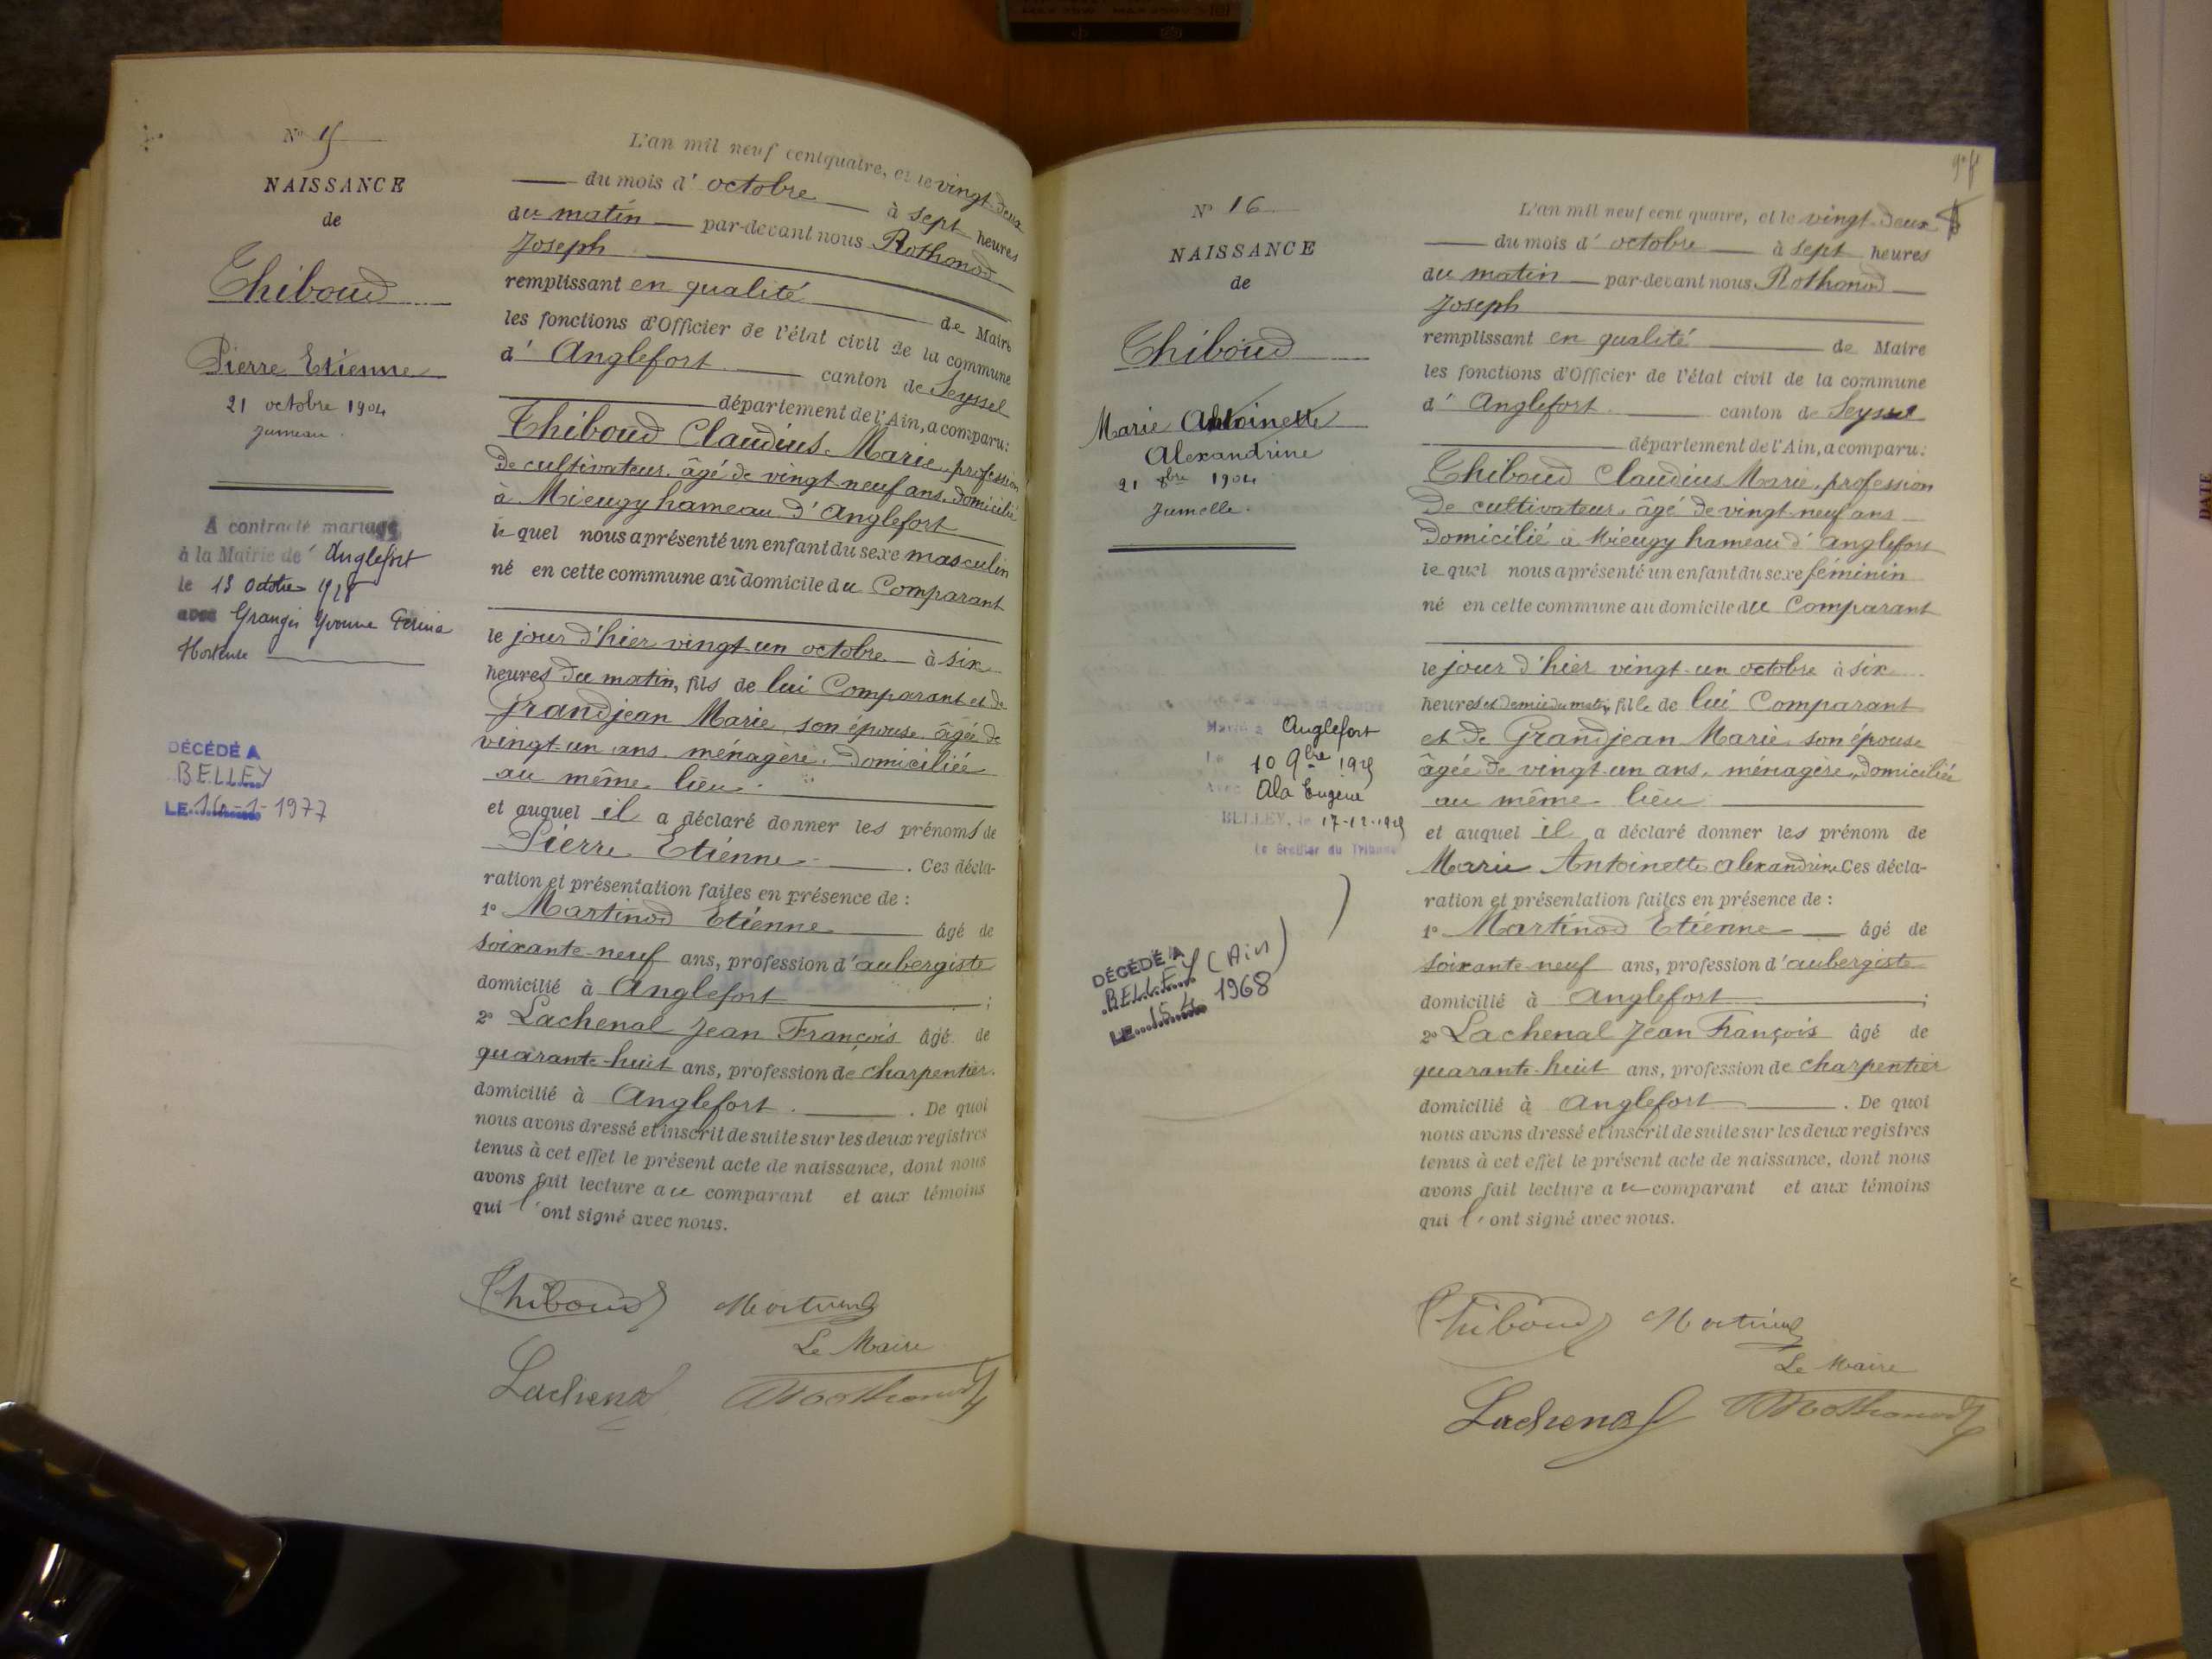 N° 15
NAISSANCE
de
Thiboud
Pierre Etienne
21 octobre 1904
jumeau.
A contracté mariage
à la Mairie de Anglefort
le 13 Octobre
avec Yvonne
Hortense
DÉCÉDÉ A
BELLEY
LE 1977
L'an mil neuf cent quatre, et le vingt-deux
du mois d' octobre à sept heures
du matin par-devant nous Rothonod
Joseph
remplissant en qualité de Maire
les fonctions d'Officier de l'état civil de la commune
d' Anglefort canton de Seyssel
département de l'Ain, a comparu:
Thiboud Claudius Marie, profession
de cultivateur, âgé de vingt-neuf ans, domicilié
à Mieugy hameau d'Anglefort
lequel nous a présenté un enfant du sexe masculin
né en cette commune au domicile du Comparant
le jour d'hier vingt-un octobre à six
heures du matin, fils de lui Comparant et de
Grandjean Marie, son épouse, âgée de
vingt-un ans, ménagère, domiciliée
au même lieu
et auquel il a déclaré donner les prénoms de
Pierre Etienne. Ces décla-
ration et présentation faites en présence de :
1° Martinod Etienne âgé de
soixante-neuf ans, profession d'aubergiste
domicilié à Anglefort ;
2° Lachenal Jean François âgé de
quarante-huit ans, profession de charpentier.
domicilié à Anglefort. De quoi
nous avons dressé et inscrit de suite sur les deux registres
tenus à cet effet le présent acte de naissance, dont nous
avons fait lecture au comparant et aux témoins
qui l'ont signé avec nous.
Thiboud Martinod
Le Maire
Lachenal Rothonod
N° 16
NAISSANCE
de
Thiboud
Marie Antoinette
Alexandrine
21 8bre 1904
Jumelle.
Marié à Anglefort
Le 10 9bre
Avec Ala Eugène
BELLEY, le 17-12-
Le Greffier du Tribunal
DÉCÉDÉ A
BELLEY (Ain)
LE 15.4 1968
L'an mil neuf cent quatre, et le vingt-deux
du mois d' octobre à sept heures
du matin par-devant nous Rothonod
Joseph
remplissant en qualité de Maire
les fonctions d'Officier de l'état civil de la commune
d' Anglefort canton de Seyssel
département de l'Ain, a comparu:
Thiboud Claudius Marie, profession
de cultivateur, âgé de vingt-neuf ans
domicilié à Mieugy hameau d'Anglefort
lequel nous a présenté un enfant du sexe féminin
né en cette commune au domicile du Comparant
le jour d'hier vingt-un octobre à six
heures et demie du matin, fille de lui Comparant
et de Grandjean Marie, son épouse
âgée de vingt-un ans, ménagère, domiciliée
au même lieu
et auquel il a déclaré donner les prénom de
Marie Antoinette Alexandrine Ces décla-
ration et présentation faites en présence de :
1° Martinod Etienne âgé de
soixante-neuf ans, profession d'aubergiste
domicilié à Anglefort ;
2° Lachenal Jean François âgé de
quarante-huit ans, profession de charpentier
domicilié à Anglefort. De quoi
nous avons dressé et inscrit de suite sur les deux registres
tenus à cet effet le présent acte de naissance, dont nous
avons fait lecture au comparant et aux témoins
qui l'ont signé avec nous.
Thiboud Martinod
Le Maire
Lachenal Rothonod
DATE